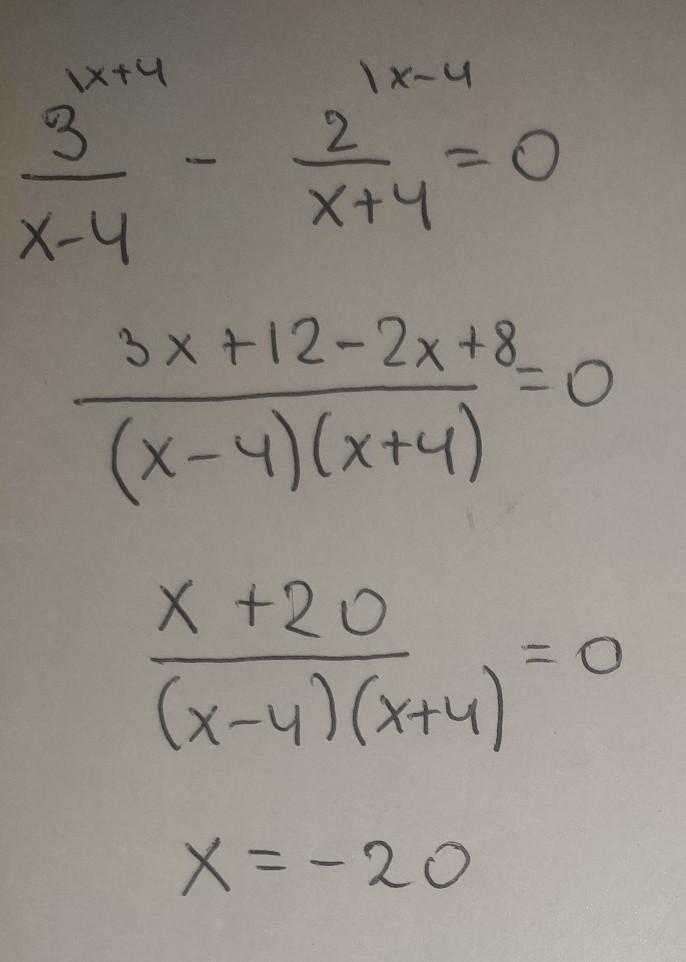 \x+4 \x-4
3/(x-4) - 2/(x+4) = 0
(3x+12-2x+8)/((x-4)(x+4)) = 0
(x+20)/((x-4)(x+4)) = 0
x = -20